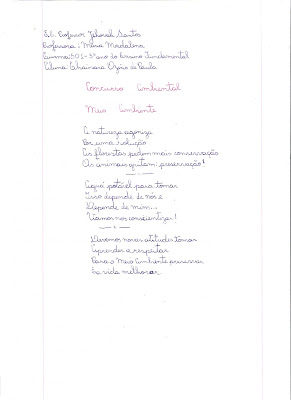 E.E. Professor Jehovah Santos
Professora: Maria Madalena
Turma: 501 - 5º ano do Ensino Fundamental
Aluna: Thainara Ozório de Paula
Concurso Ambiental
Meio Ambiente
A natureza agoniza
Por uma solução
As florestas pedem mais conservação
Os animais gritam: preservação!
Água potável para tomar
Isso depende de nós e
Depende de mim...
Vamos nos conscientizar!
Devemos novas atitudes tomar
Aprender a respeitar
Para o Meio Ambiente preservar
E a vida melhorar